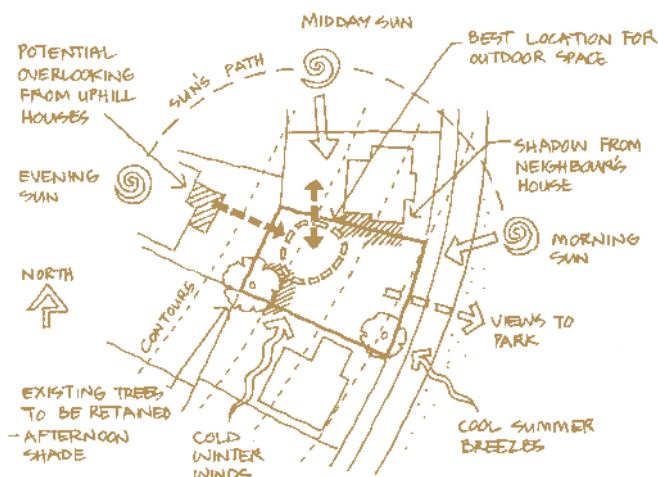 MIDDAY SUN
POTENTIAL
OVERLOOKING
FROM UPHILL
HOUSES
SUN'S PATH
BEST LOCATION FOR
OUTDOOR SPACE
SHADOW FROM
NEIGHBOUR'S
HOUSE
EVENING
SUN
MORNING
SUN
NORTH
CONTOURS
VIEWS TO
PARK
EXISTING TREES
TO BE RETAINED
- AFTERNOON
SHADE
COLD
WINTER
WINDS
COOL SUMMER
BREEZES